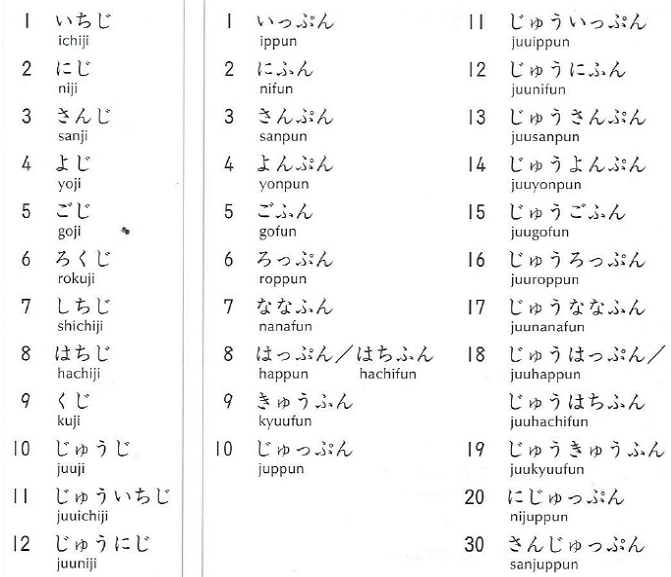 1 いちじ
ichiji
2 にじ
niji
3 さんじ
sanji
4 よじ
yoji
5 ごじ
goji
6 ろくじ
rokuji
7 しちじ
shichiji
8 はちじ
hachiji
9 くじ
kuji
10 じゅうじ
juuji
11 じゅういちじ
juuichiji
12 じゅうにじ
juuniji
1 いっぷん
ippun
2 にふん
nifun
3 さんぷん
sanpun
4 よんぷん
yonpun
5 ごふん
gofun
6 ろっぷん
roppun
7 ななふん
nanafun
8 はっぷん／はちふん
happun hachifun
9 きゅうふん
kyuufun
10 じゅっぷん
juppun
11 じゅういっぷん
juuippun
12 じゅうにふん
juunifun
13 じゅうさんぷん
juusanpun
14 じゅうよんぷん
juuyonpun
15 じゅうごふん
juugofun
16 じゅうろっぷん
juuroppun
17 じゅうななふん
juunanafun
18 じゅうはっぷん／
juuhappun
じゅうはちふん
juuhachifun
19 じゅうきゅうふん
juukyuufun
20 にじゅっぷん
nijuppun
30 さんじゅっぷん
sanjuppun